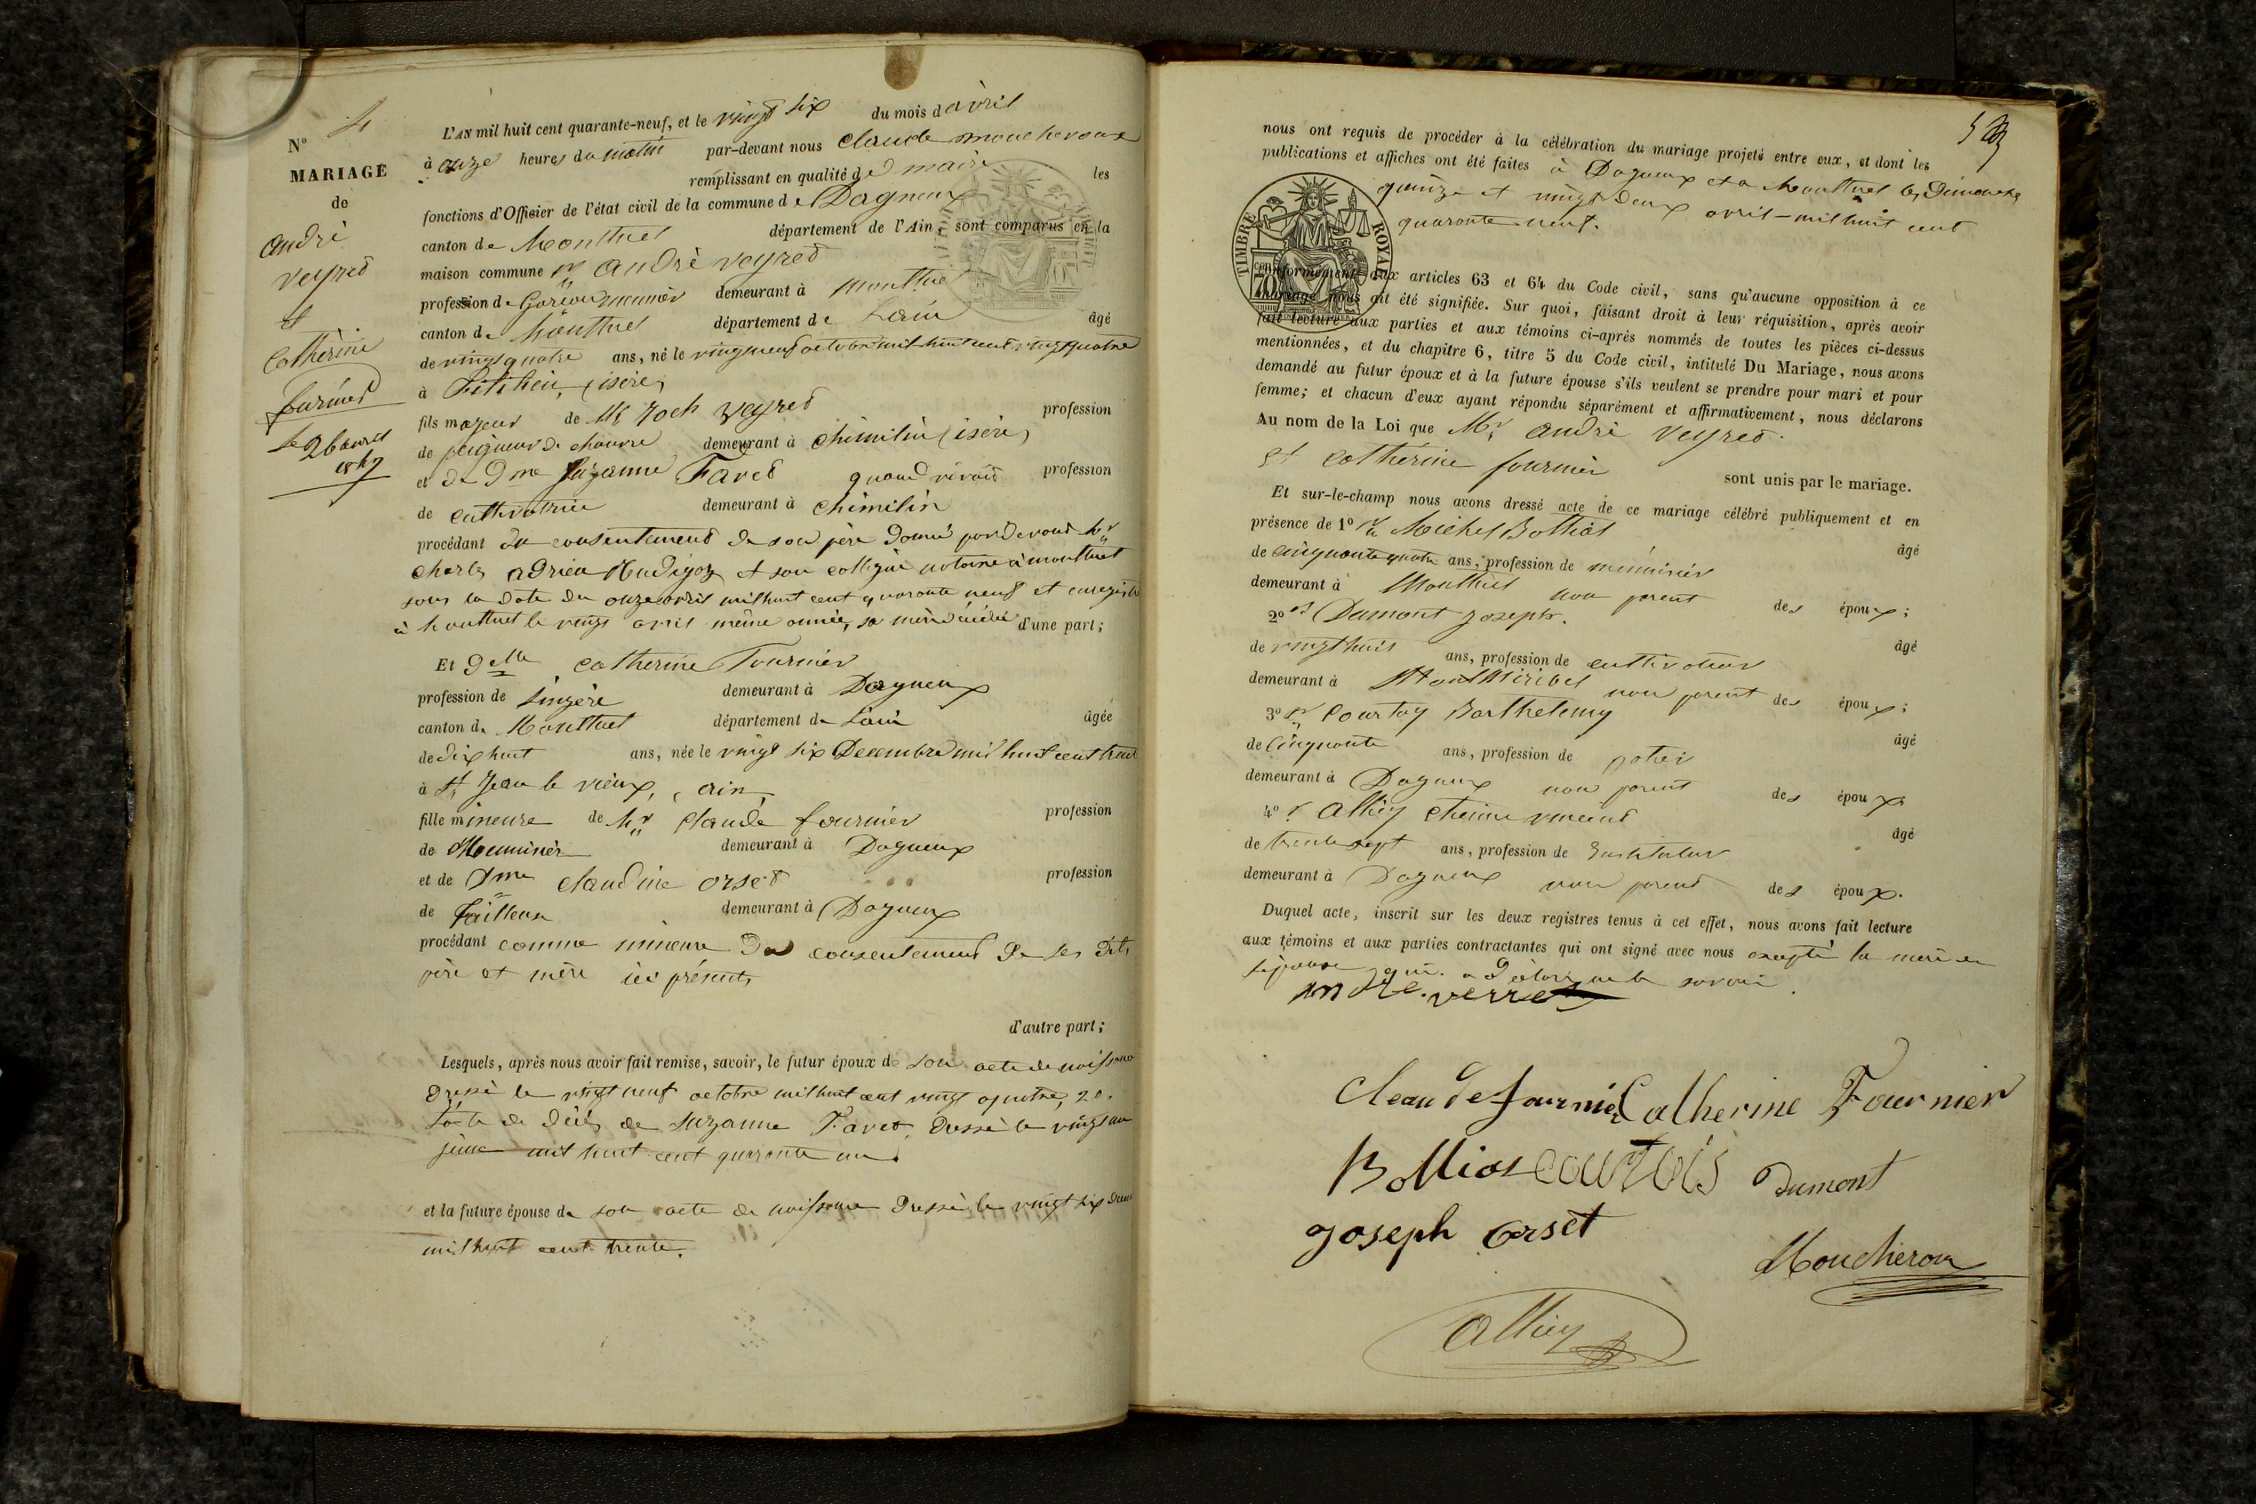 N° 4
MARIAGE
de
andré
veyret
et
Catherine
furnier
Le 26 avril
1849
L'AN mil huit cent quarante-neuf, et le vingt six du mois d avril
à onze heures du matin par-devant nous Claude moucheroux
remplissant en qualité de maire les
fonctions d'Officier de l'état civil de la commune de Dagneux
canton de Montluel département de l'Ain, sont comparus en la
maison commune Mr andré veyret
profession de Garçon meunier demeurant à montluel
canton de Montluel département de Lain âgé
de vingt quatre ans, né le vingt neuf octobre mil huit cent vingt quatre
à (isère)
fils majeur de Mr roch veyret profession
de peigneur de chanvre demeurant à chimilin (isère)
et de Dme Suzanne Faret quand vivait profession
de cultivatrice demeurant à chimilin
procédant du consentement de son père donné pardevant Mr
Charles adrien et son collègue notaire à montluel
sous la date du onze avril mil huit cent quarante neuf et enregistré
à montluel le vingt avril même année, sa mère décédée d'une part;
Et Delle Catherine Fournier
profession de lingère demeurant à Dagneux
canton de Montluel département de Lain âgée
de dix huit ans, née le vingt six Decembre mil huit cent trente
à St Jean le vieux, (ain)
fille mineure de Mr Claude fournier profession
de Meunier demeurant à Dagneux
et de Dme claudine orset profession
de Tailleuse demeurant à Dagneux
procédant comme mineure du consentement de ses dits
père et mère ici présents
d'autre part;
Lesquels, après nous avoir fait remise, savoir, le futur époux de son acte de naissance
dressé le vingt neuf octobre mil huit cent vingt quatre, 2o.
l'acte de décès de Suzanne Faret, dressé le vingt un
juin mil huit cent quarante un
et la future épouse de son acte de naissance dressé le vingt six
mil huit cent trente.
nous ont requis de procéder à la célébration du mariage projeté entre eux, et dont les
publications et affiches ont été faites à Dagneux et à Montluel les Dimanches
quinze et vingt deux avril mil huit cent
quarante neuf.
TIMBRE ROYAL
conformément aux articles 63 et 64 du Code civil, sans qu'aucune opposition à ce
mariage nous ait été signifiée. Sur quoi, faisant droit à leur réquisition, après avoir
fait lecture aux parties et aux témoins ci-après nommés de toutes les pièces ci-dessus
mentionnées, et du chapitre 6, titre 5 du Code civil, intitulé Du Mariage, nous avons
demandé au futur époux et à la future épouse s'ils veulent se prendre pour mari et pour
femme; et chacun d'eux ayant répondu séparément et affirmativement, nous déclarons
Au nom de la Loi que Mr andré veyret.
et Catherine fournier sont unis par le mariage.
Et sur-le-champ nous avons dressé acte de ce mariage célébré publiquement et en
présence de 1° Mr Michel Bolliat âgé
de cinquante quatre ans, profession de menuisier
demeurant à Montluel non parent des époux;
2° Dumont joseph. âgé
de vingt huit ans, profession de cultivateur
demeurant à non parent des époux;
3° Courtoy Barthelemy âgé
de Cinquante ans, profession de potier
demeurant à Dagneux non parent des époux;
4° Alliey vincent âgé
de trente sept ans, profession de instituteur
demeurant à Dagneux non parent des époux.
Duquel acte, inscrit sur les deux registres tenus à cet effet, nous avons fait lecture
aux témoins et aux parties contractantes qui ont signé avec nous excepté la mère de
l'épouse qui a déclaré ne le savoir.
andre verret
Claude fournier Catherine Fournier
Bolliat courtois Dumont
joseph orset
Moucheroux
Alliey